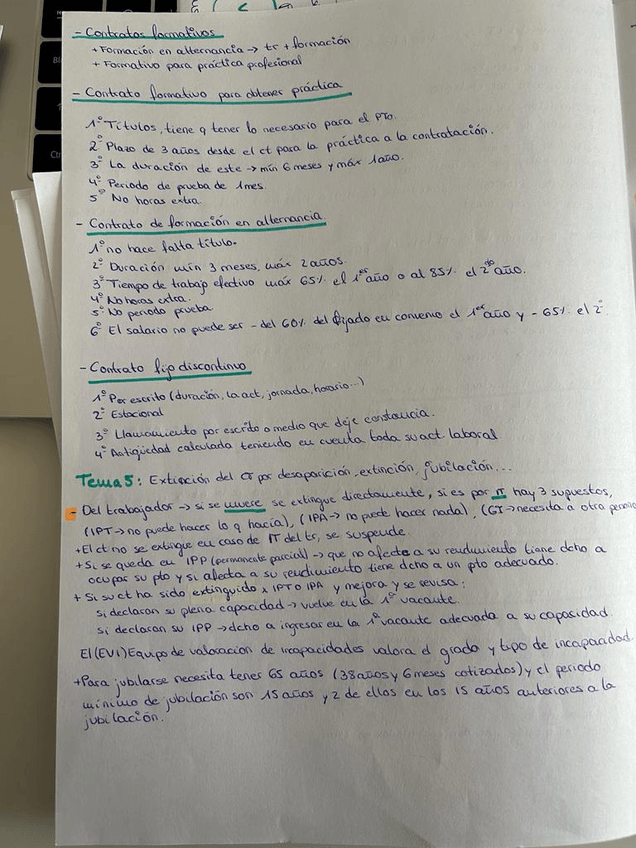 - Contratos formativos
+ Formación en alternancia → tr + formación
+ Formativo para práctica profesional
- Contrato formativo para obtener práctica
1º Títulos, tiene q tener lo necesario para el PTo.
2º Plazo de 3 años desde el ct para la práctica a la contratación.
3º La duración de este → mín 6 meses y máx 1 año.
4º Periodo de prueba de 1 mes.
5º No horas extra
- Contrato de formación en alternancia
1º no hace falta título.
2º Duración mín 3 meses, máx 2 años.
3º Tiempo de trabajo efectivo máx 65% el 1er año o al 85% el 2do año.
4º No horas extra.
5º No periodo prueba
6º El salario no puede ser - del 60% del fijado en convenio el 1er año y - 65% el 2º
- Contrato fijo discontinuo
1º Por escrito (duración, la act, jornada, horario...)
2º Estacional
3º Llamamiento por escrito o medio que deje constancia.
4º Antigüedad calculada teniendo en cuenta toda su act. laboral
Tema 5: Extinción del CT por desaparición, extinción, jubilación...
- Del trabajador → si se muere se extingue directamente, si es por IT hay 3 supuestos,
(IPT → no puede hacer lo q hacía), (IPA → no puede hacer nada), (GI → necesita a otra persona
+ El ct no se extingue en caso de IT del tr, se suspende.
+ Si se queda en IPP (permanente parcial) → que no afecta a su rendimiento tiene dcho a
ocupar su pto y si afecta a su rendimiento tiene dcho a un pto adecuado.
+ Si su ct ha sido extinguido x IPT o IPA y mejora y se revisa:
Si declaran su plena capacidad → vuelve en la 1º vacante.
Si declaran su IPP → dcho a ingresar en la 1º vacante adecuada a su capacidad.
El (EVI) Equipo de valoración de incapacidades valora el grado y tipo de incapacidad.
+ Para jubilarse necesita tener 65 años (38 años y 6 meses cotizados) y el periodo
mínimo de jubilación son 15 años y 2 de ellos en los 15 años anteriores a la
jubilación.